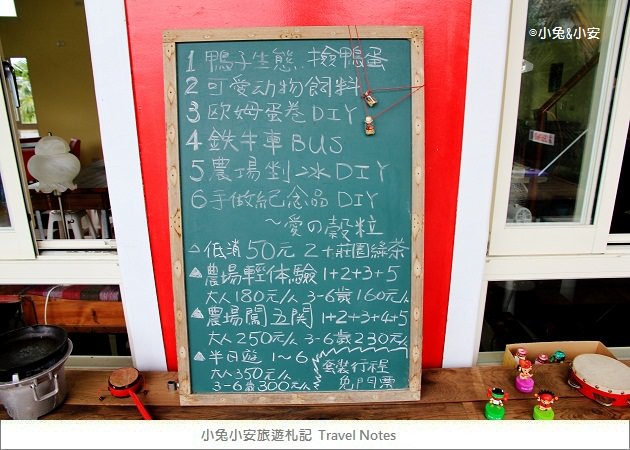 ©小兔&小安
1 鴨子生態.撿鴨蛋
2 可愛动物飼料
3 欧姆蛋卷DIY
4 鉄牛車BUS
5 農場剉冰DIY
6 手做紀念品DIY
～愛の穀粒
△低消50元 2+莊園綠茶
▲農場輕体驗 1+2+3+5
大人180元/人 3-6歲160元/人
▲農場闖五関 1+2+3+4+5
大人250元/人 3-6歲230元/人
▲半日遊 1～6
大人350元/人
3-6歲300元/人
套裝行程
免門票
小兔小安旅遊札記 Travel Notes